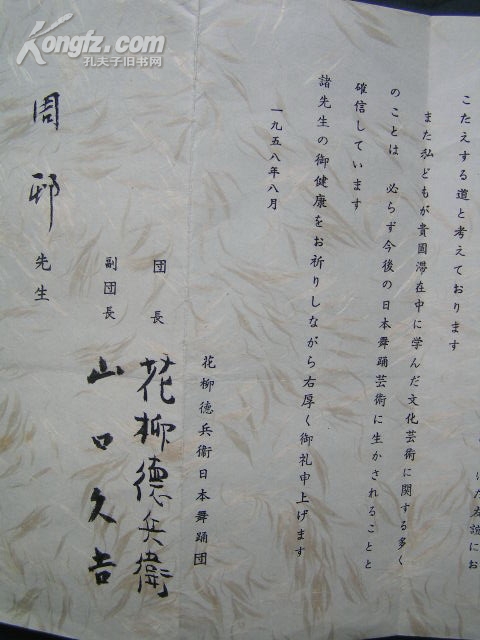 Kongfz.com
孔夫子旧书网
た友誼にお
こたえする道と考えております
また私どもが貴国滞在中に学んだ文化芸術に関する多く
のことは 必らず今後の日本舞踊芸術に生かされることと
確信しています
諸先生の御健康をお祈りしながら右厚く御礼申上げます
一九五八年八月
花柳德兵衛日本舞踊団
団長 花柳德兵衛
副団長 山口久吉
周邨先生